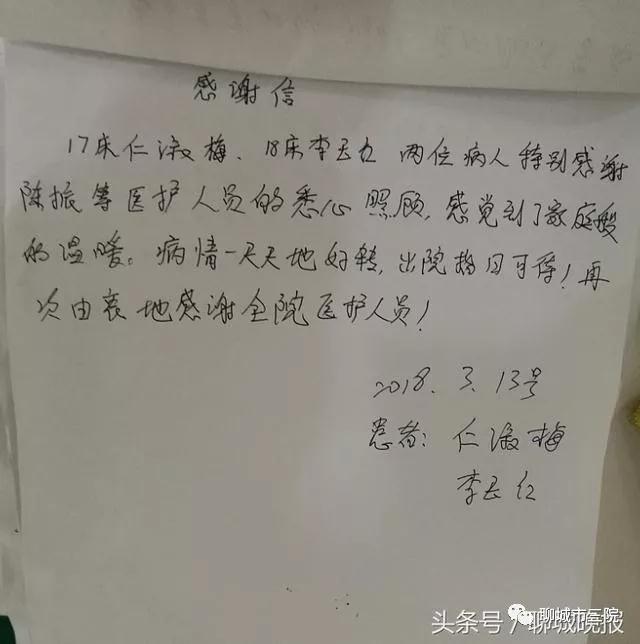 感谢信
17床仁淑梅、18床李玉 两位病人特别感谢
陈振等医护人员的悉心照顾,感觉到了家庭般
的温暖。病情一天天地好转,出院指日可待!再
次由衷地感谢全院医护人员!
2018.3.13号
患者:仁淑梅
李玉红
聊城市三院
头条号/聊城晚报